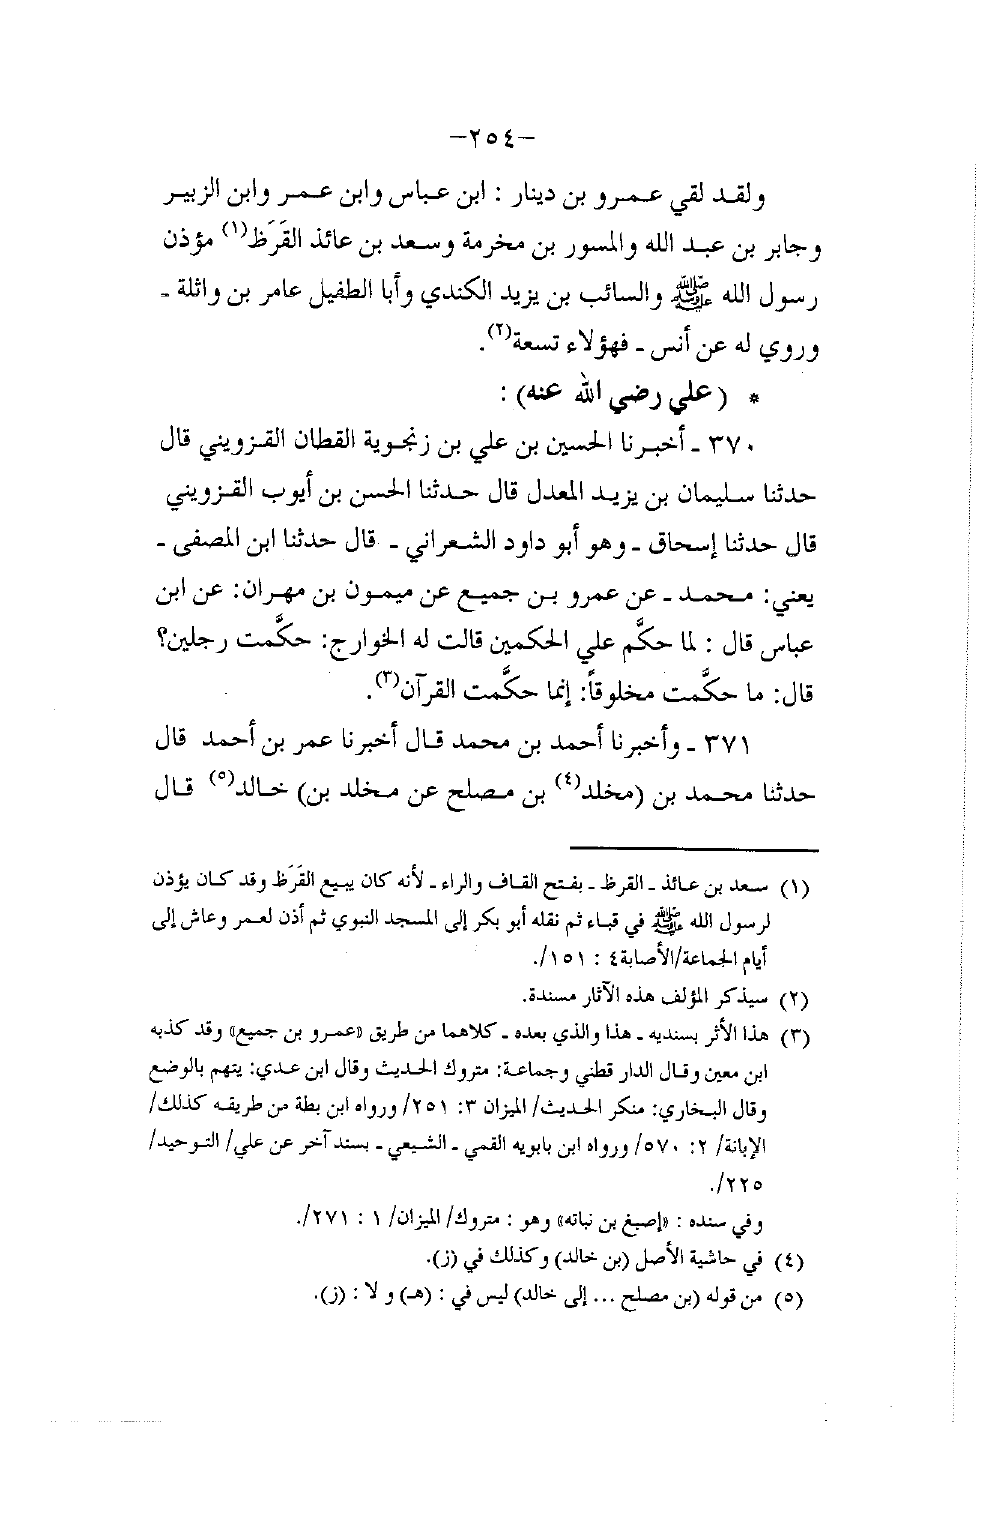 -٢٥٤-
ولقد لقي عمرو بن دينار : ابن عباس وابن عمر وابن الزبير
وجابر بن عبد الله والمسور بن مخرمة وسعد بن عائذ القَرَظ(١) مؤذن
رسول الله ﷺ والسائب بن يزيد الكندي وأبا الطفيل عامر بن واثلة -
وروي له عن أنس - فهؤلاء تسعة(٢).
* (علي رضي الله عنه) :
٣٧٠ - أخبرنا الحسين بن علي بن زنجوية القطان القزويني قال
حدثنا سليمان بن يزيد المعدل قال حدثنا الحسن بن أيوب القزويني
قال حدثنا إسحاق - وهو أبو داود الشعراني - قال حدثنا ابن المصفى -
يعني: محمد - عن عمرو بن جميع عن ميمون بن مهران: عن ابن
عباس قال : لما حكَّم علي الحكمين قالت له الخوارج: حكَّمت رجلين؟
قال: ما حكَّمت مخلوقاً: إنما حكَّمت القرآن(٣).
٣٧١ - وأخبرنا أحمد بن محمد قال أخبرنا عمر بن أحمد قال
حدثنا محمد بن (مخلد(٤) بن مصلح عن مخلد بن) خالد(٥) قال
(١) سعد بن عائذ - القرظ - بفتح القاف والراء - لأنه كان يبيع القَرَظ وقد كان يؤذن
لرسول الله ﷺ في قباء ثم نقله أبو بكر إلى المسجد النبوي ثم أذن لعمر وعاش إلى
أيام الجماعة/الأصابة٤ : ١٥١/.
(٢) سيذكر المؤلف هذه الآثار مسندة.
(٣) هذا الأثر بسنديه - هذا والذي بعده - كلاهما من طريق «عمرو بن جميع» وقد كذبه
ابن معين وقال الدار قطني وجماعة: متروك الحديث وقال ابن عدي: يتهم بالوضع
وقال البخاري: منكر الحديث/ الميزان ٣: ٢٥١/ ورواه ابن بطة من طريقه كذلك/
الإبانة/ ٢: ٥٧٠/ ورواه ابن بابويه القمي - الشيعي - بسند آخر عن علي/ التوحيد/
٢٢٥/.
وفي سنده : «إصبغ بن نباته» وهو : متروك/ الميزان/ ١ : ٢٧١/.
(٤) في حاشية الأصل (بن خالد) وكذلك في (ز).
(٥) من قوله (بن مصلح ... إلى خالد) ليس في : (هـ) و لا : (ز).